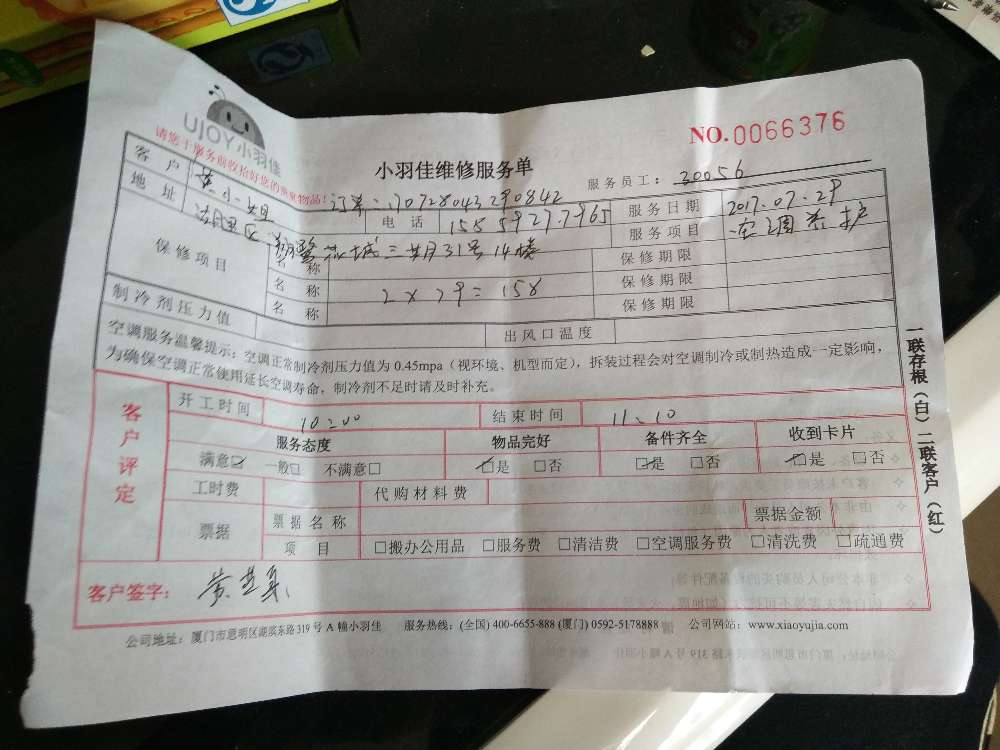 UJOY 小羽佳
请您于服务前收拾好您的贵重物品!
NO.0066376
小羽佳维修服务单
服务员工: 30056
客户 黄小姐 订单:170728043290842
电话 15859277965 服务日期 2017.07.29
地址 湖里区 三期31号14楼 服务项目 空调养护
保修项目 名称 保修期限
名称 2×79=158 保修期限
名称 保修期限
制冷剂压力值 出风口温度
空调服务温馨提示:空调正常制冷剂压力值为 0.45mpa(视环境、机型而定),拆装过程会对空调制冷或制热造成一定影响,
为确保空调正常使用延长空调寿命,制冷剂不足时请及时补充。
客户评定
开工时间 10:00 结束时间 11:10
服务态度 物品完好 备件齐全 收到卡片
满意☑ 一般□ 不满意□ ☑是 □否 ☑是 □否 ☑是 □否
工时费 代购材料费
票据 票据名称 票据金额
项目 □搬办公用品 □服务费 □清洁费 □空调服务费 □清洗费 □疏通费
客户签字:
公司地址:厦门市思明区湖滨东路 319 号 A 幢小羽佳 服务热线:(全国) 400-6655-888 (厦门) 0592-5178888 公司网站:www.xiaoyujia.com
一联存根(白)二联客户(红)